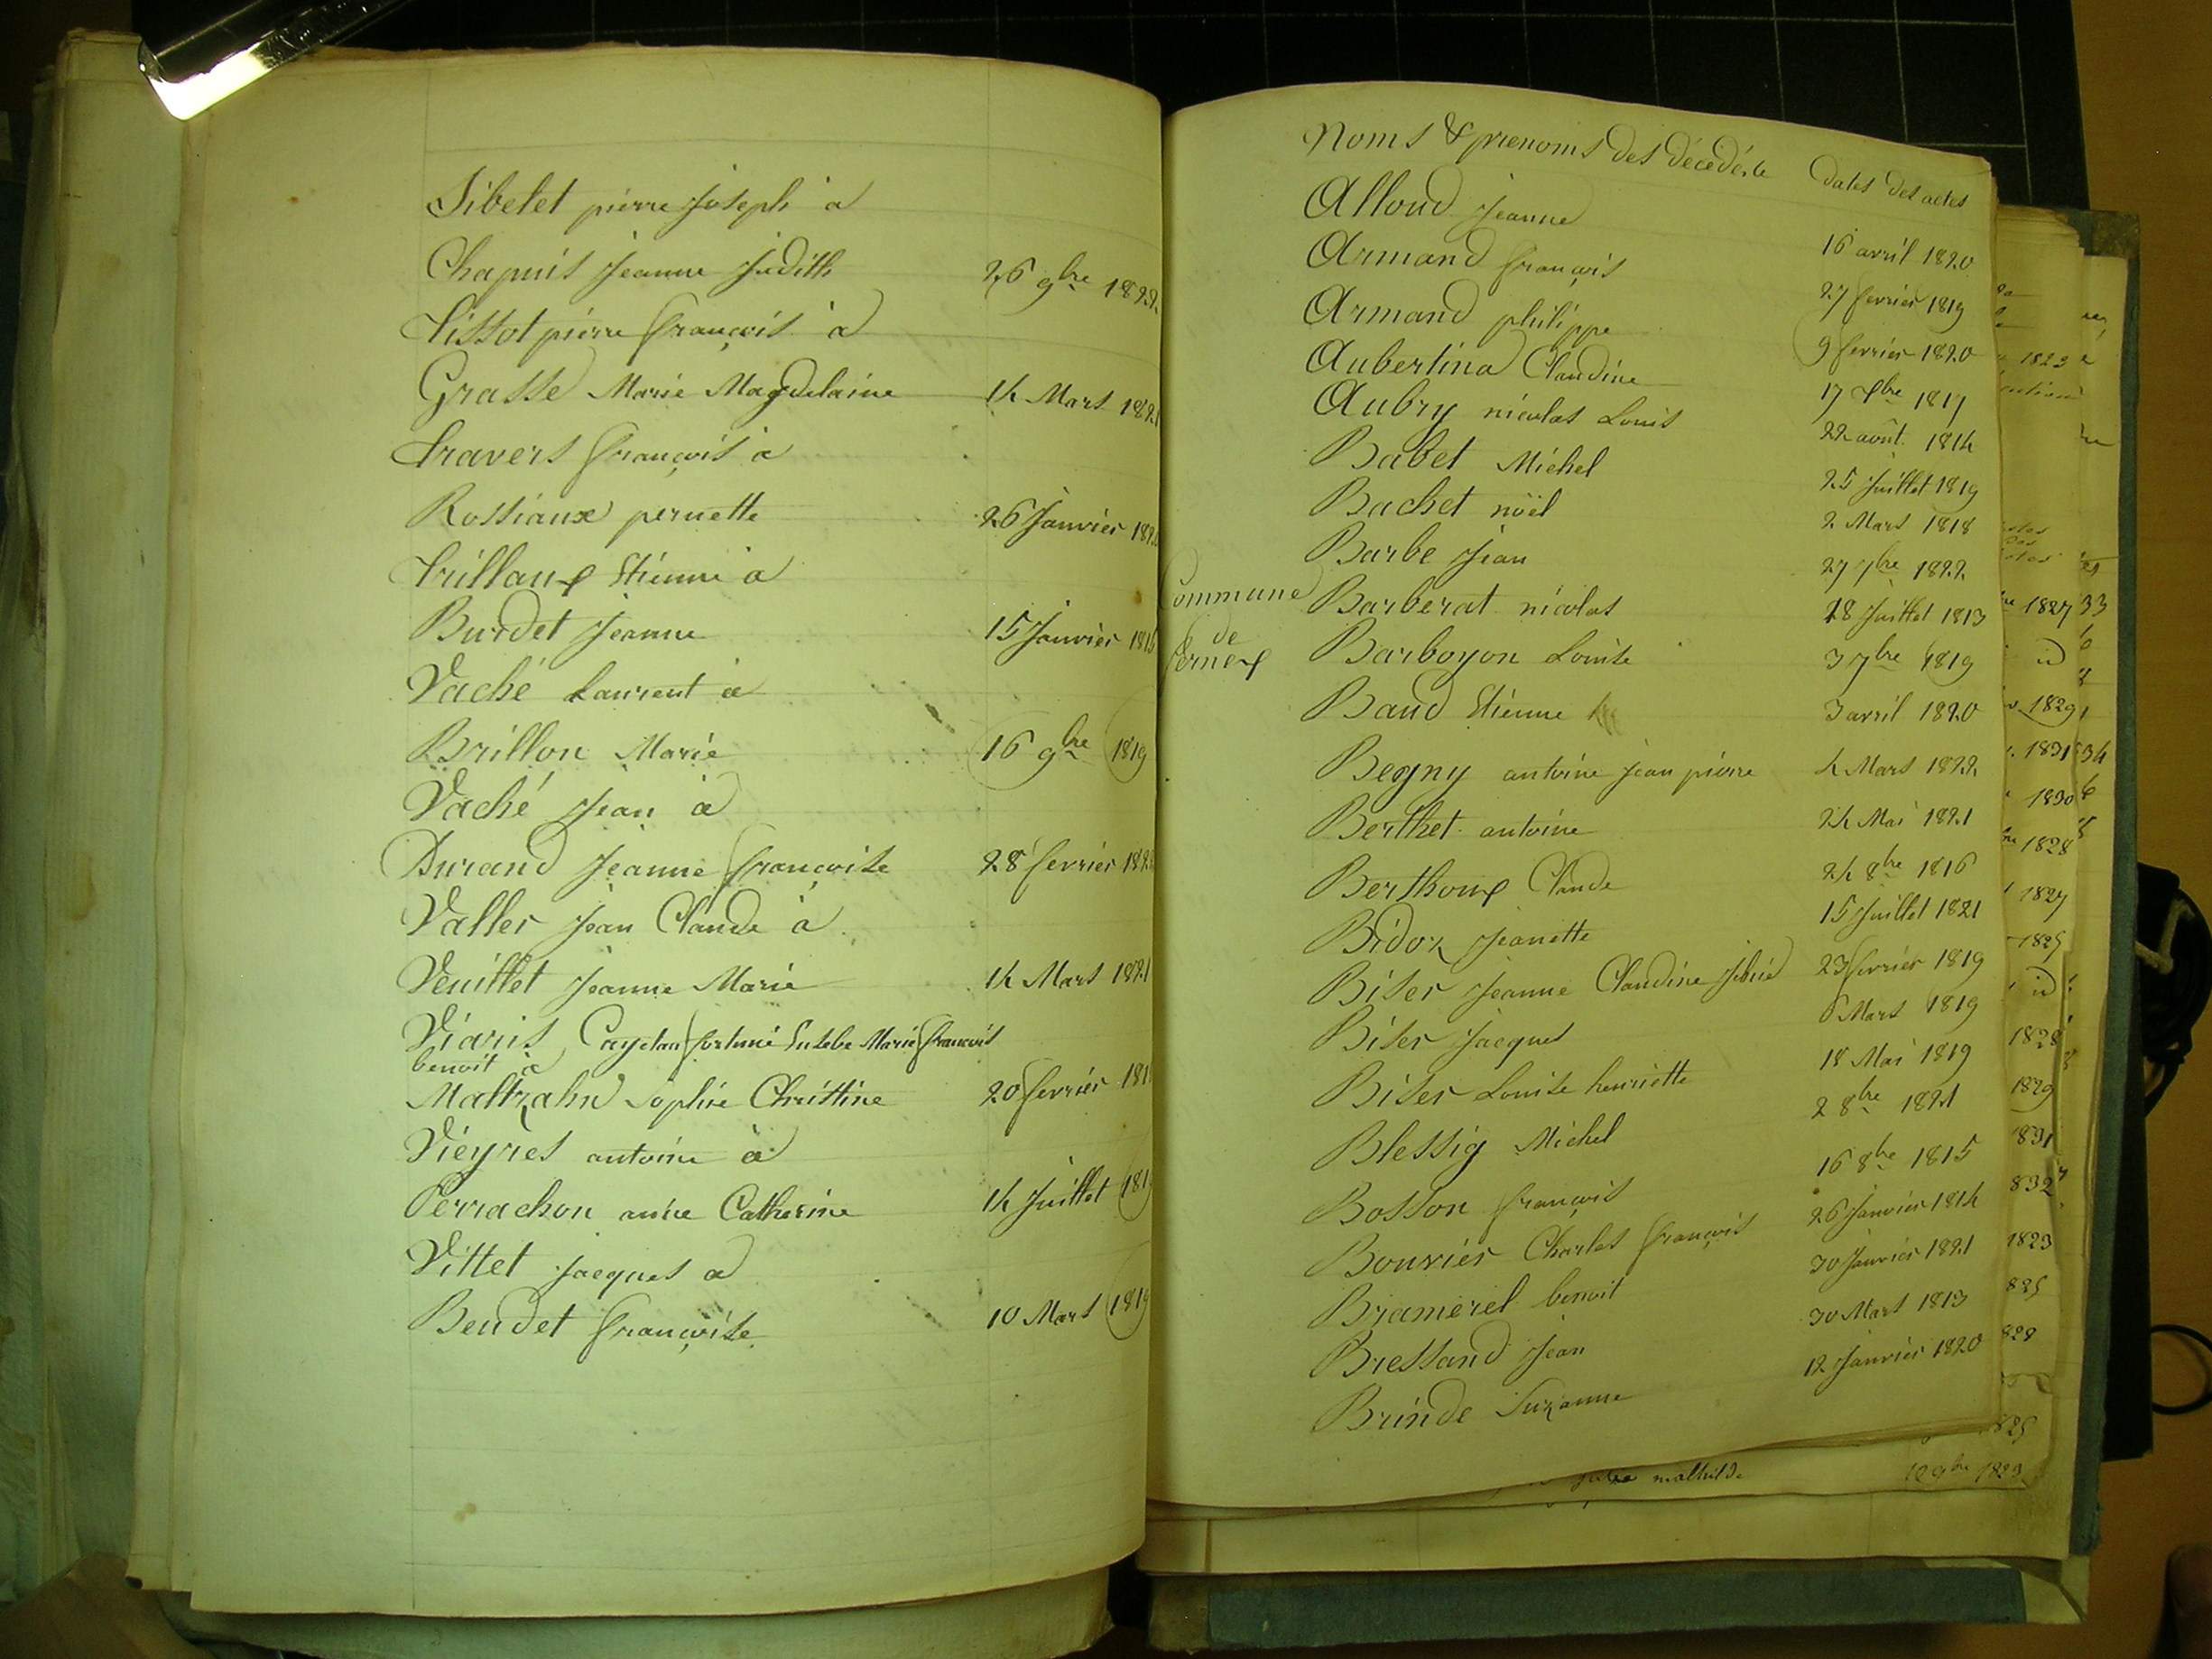 Sibelet pierre Joseph à
Chapuis Jeanne Judith 26 9bre 1822
Tissot pierre françois à
Grasse Marie Magdelaine 14 Mars 182
Travers françois à
Rossiaux pernette 26 Janvier 182
Trillaux Etienne à
Burdet Jeanne 15 Janvier 181
Vaché Laurent à
Brillon Marie 16 9bre 1819
Vaché Jean à
Durand Jeanne françoise 28 fevrier 182
Valler Jean Claude à
Venillet Jeanne Marie 14 Mars 1821
Viaris Cayetan fortuné Eusebe Marie françois
benoit à
Maltzahn Sophie Christine 20 fevrier 181
Vieyres antoine à
Perrachon anne Catherine 14 Juillet 181
Vittet Jacques à
Beudet françoise 10 Mars 1819
Commune
de
fernex
Noms & prenoms des décédés dates des actes
Alloud Jeanne 16 avril 1820
Armand françois 27 fevrier 1819
Armand philippe 9 fevrier 1820
Aubertina Claudine 17 Xbre 1817
Aubry nicolas Louis 22 août 1814
Babet Michel 25 Juillet 1819
Bachet noël 2 Mars 1818
Barbe Jean 27 7bre 1822
Barberat nicolas 28 Juillet 1813
Barboyon Louise 3 7bre 1819
Baud Etienne 3 avril 1820
Begny antoine Jean pierre 4 Mars 1822
Berthet antoine 24 Mai 1821
Berthoux Claude 24 8bre 1816
Bidoz Jeanette 15 Juillet 1821
Biser Jeanne Claudine Silvie 23 fevrier 1819
Biser Jacques 6 Mars 1819
Biser Louise henriette 18 Mai 1819
Blessig Michel 2 8bre 1821
Bosson françois 16 8bre 1815
Bouvier Charles françois 26 Janvier 1814
Bramerel benoit 30 Janvier 1821
Bressand Jean 30 Mars 1813
Brinde Suzanne 12 Janvier 1820
mathilde 1829